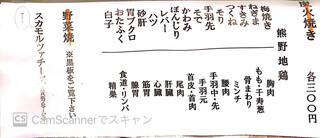 炭火焼き 各三〇〇円
熊野地鶏
もも・干寿葱
胸肉
骨まわり
ミンチ
腰肉
手羽中・先
手羽元
首皮・首肉
尾肉
肝臓
心臓
筋胃
腺胃
精肉
食道・リンパ
梅焼き
すきみ
つくね
そり
手羽先
そで
かわみ
ぼんじり
ハツ
レバー
砂肝
胃ブクロ
おたふく
白子
野菜焼 ※黒板をご覧下さい
スカモルツァチーズ
CamScannerでスキャン